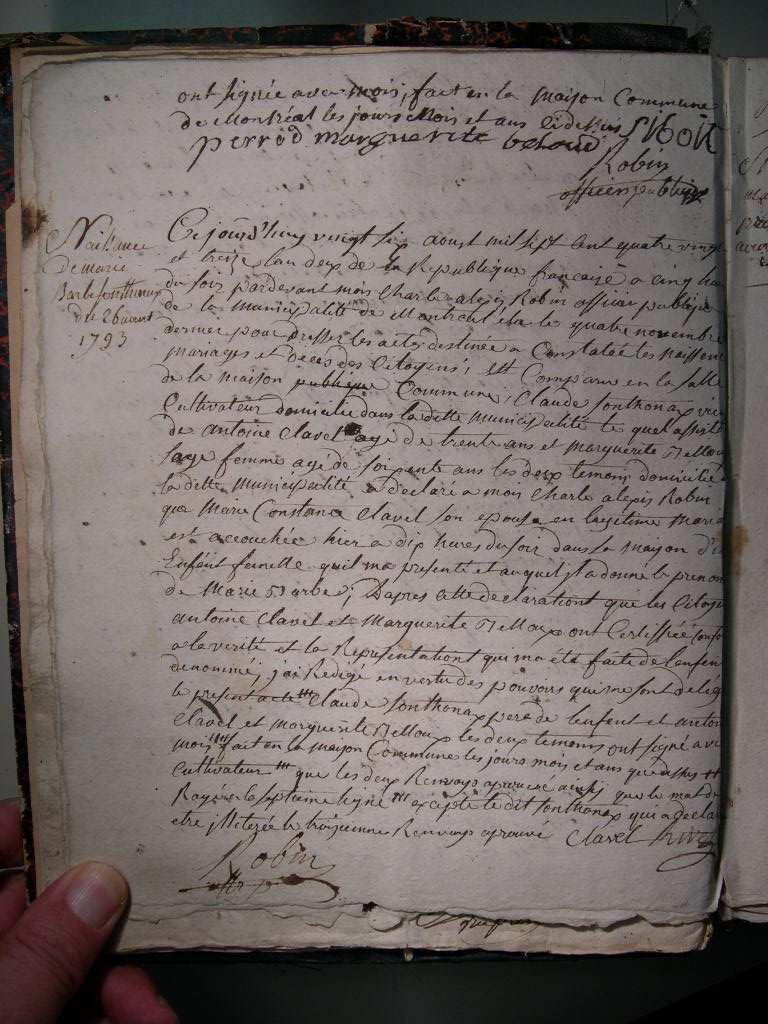 ont signée avec mois, fait en la maison Commune
de Montréal les jours Mois et ans ci dessus SIBOIT
perrod marguerite beroud
Robin
officier publique
Naissance
De marie
Barbe sonthonax
du 26 aoust
1793
Cejourd'huy vingt six aoust mil sept Cent quatre vingt
et treize l'an deux de la Republique françaisse a cinq heu
du soir pardevant mois Charle alexis Robin officier publique
de la municipalité de Montreal élu le quatre novembre
dernier pour dresser les actes destinée a Constatée les naissen
mariages et déces des Citoyens; Est Comparue en la salle
de la maison publique Commune; Claude sonthonax
Cultivateur domicilié dans la ditte municipalité le quel assisté
de antoine Clavel agé de trente ans et marguerite
sage femme agé de soixente ans les deux temoins domicilié
la ditte municipalité a déclaré a mois Charle alexis Robin
que Marie Constance Clavel son epouse en legitime Maria
est accouchée hier a dix hures du soir dans sa mayson d'
Enfént femelle quil ma presenté et auquel il a donné le prenom
de Marie Barbe; Dapres cette declarationt que les Citoye
antoine Clavel et Marguerite ont Certiffiée Confor
a la verité et la Representationt qui ma été faite de l'enfen
denommé, j'ai Redigé en vertu des pouvoirs qui me sont delég
le present acte Claude sonthonax pere de l'enfent et anton
Clavel et marguerite les deux temoins ont signé ave
mois fait en la mayson Commune les jours mois et ans que dessus
Cultivateur que les deux Renvoys aprouvé ainsi que le mot
Rayé a la septieme ligne excepté le dit sonthonax qui a declar
etre illeterée le troisieme Renvoys aprouvé Clavel
Robin